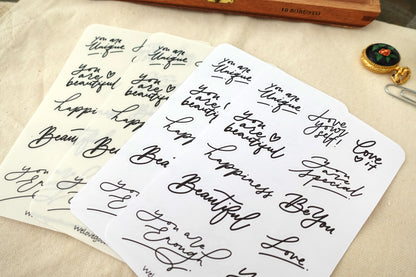 you are
Unique
you are
Unique
you
are
beautiful
you
are
beautiful
you are
Unique
you are
Unique
you
are
beautiful
you
are
beautiful
Love
your
self!
Love
it
happi
happi
happiness
you
are
Special
Beau
Bea
Beautiful
Be You
you
you
you are
Enough
Love.